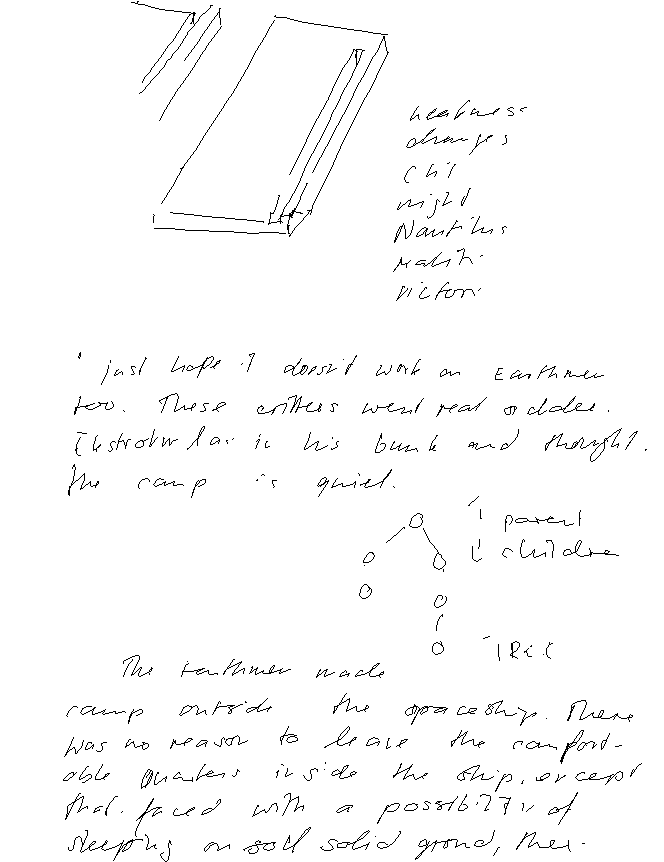 weakness
changes
night
Nautilus
realit
victori
just hope it doesn't work on Earthmen
too. These critters went real sudden.
lay in his bunk and thought.
The camp is quiet.
parent
children
TREE
The Earthmen made
camp outside the spaceship. There
was no reason to leave the comfort-
able quarters inside the ship, except
that, faced with a possibility of
sleeping on soil solid ground, they